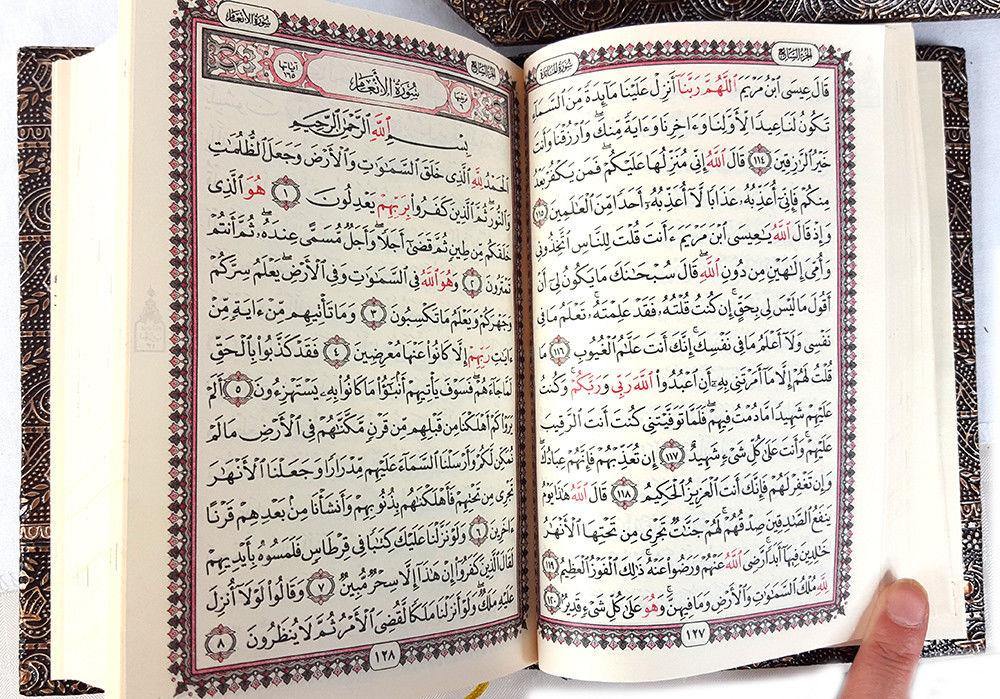 الجزء السابع
سورة المائدة
قَالَ عِيسَى ٱبْنُ مَرْيَمَ ٱللَّهُمَّ رَبَّنَآ أَنزِلْ عَلَيْنَا مَآئِدَةً مِّنَ ٱلسَّمَآءِ
تَكُونُ لَنَا عِيدًا لِّأَوَّلِنَا وَءَاخِرِنَا وَءَايَةً مِّنكَ ۖ وَٱرْزُقْنَا وَأَنتَ
خَيْرُ ٱلرَّٰزِقِينَ ١١٤ قَالَ ٱللَّهُ إِنِّى مُنَزِّلُهَا عَلَيْكُمْ ۖ فَمَن يَكْفُرْ بَعْدُ
مِنكُمْ فَإِنِّىٓ أُعَذِّبُهُۥ عَذَابًا لَّآ أُعَذِّبُهُۥٓ أَحَدًا مِّنَ ٱلْعَٰلَمِينَ ١١٥
وَإِذْ قَالَ ٱللَّهُ يَٰعِيسَى ٱبْنَ مَرْيَمَ ءَأَنتَ قُلْتَ لِلنَّاسِ ٱتَّخِذُونِى
وَأُمِّىَ إِلَٰهَيْنِ مِن دُونِ ٱللَّهِ ۖ قَالَ سُبْحَٰنَكَ مَا يَكُونُ لِىٓ أَنْ
أَقُولَ مَا لَيْسَ لِى بِحَقٍّ ۚ إِن كُنتُ قُلْتُهُۥ فَقَدْ عَلِمْتَهُۥ ۚ تَعْلَمُ مَا فِى
نَفْسِى وَلَآ أَعْلَمُ مَا فِى نَفْسِكَ ۚ إِنَّكَ أَنتَ عَلَّٰمُ ٱلْغُيُوبِ ١١٦ مَا
قُلْتُ لَهُمْ إِلَّا مَآ أَمَرْتَنِى بِهِۦٓ أَنِ ٱعْبُدُوا۟ ٱللَّهَ رَبِّى وَرَبَّكُمْ ۚ وَكُنتُ
عَلَيْهِمْ شَهِيدًا مَّا دُمْتُ فِيهِمْ ۖ فَلَمَّا تَوَفَّيْتَنِى كُنتَ أَنتَ ٱلرَّقِيبَ
عَلَيْهِمْ ۚ وَأَنتَ عَلَىٰ كُلِّ شَىْءٍ شَهِيدٌ ١١٧ إِن تُعَذِّبْهُمْ فَإِنَّهُمْ عِبَادُكَ ۖ
وَإِن تَغْفِرْ لَهُمْ فَإِنَّكَ أَنتَ ٱلْعَزِيزُ ٱلْحَكِيمُ ١١٨ قَالَ ٱللَّهُ هَٰذَا يَوْمُ
يَنفَعُ ٱلصَّٰدِقِينَ صِدْقُهُمْ ۚ لَهُمْ جَنَّٰتٌ تَجْرِى مِن تَحْتِهَا ٱلْأَنْهَٰرُ
خَٰلِدِينَ فِيهَآ أَبَدًا ۚ رَّضِىَ ٱللَّهُ عَنْهُمْ وَرَضُوا۟ عَنْهُ ۚ ذَٰلِكَ ٱلْفَوْزُ ٱلْعَظِيمُ ١١٩
لِلَّهِ مُلْكُ ٱلسَّمَٰوَٰتِ وَٱلْأَرْضِ وَمَا فِيهِنَّ ۚ وَهُوَ عَلَىٰ كُلِّ شَىْءٍ قَدِيرٌۢ ١٢٠
١٢٧
الجزء السابع
سورة الأنعام
ترتيبها ٦
سورة الأنعام
آياتها ١٦٥
بِسْمِ ٱللَّهِ ٱلرَّحْمَٰنِ ٱلرَّحِيمِ
ٱلْحَمْدُ لِلَّهِ ٱلَّذِى خَلَقَ ٱلسَّمَٰوَٰتِ وَٱلْأَرْضَ وَجَعَلَ ٱلظُّلُمَٰتِ
وَٱلنُّورَ ۖ ثُمَّ ٱلَّذِينَ كَفَرُوا۟ بِرَبِّهِمْ يَعْدِلُونَ ١ هُوَ ٱلَّذِى
خَلَقَكُم مِّن طِينٍ ثُمَّ قَضَىٰٓ أَجَلًا ۖ وَأَجَلٌ مُّسَمًّى عِندَهُۥ ۖ ثُمَّ أَنتُمْ
تَمْتَرُونَ ٢ وَهُوَ ٱللَّهُ فِى ٱلسَّمَٰوَٰتِ وَفِى ٱلْأَرْضِ ۖ يَعْلَمُ سِرَّكُمْ
وَجَهْرَكُمْ وَيَعْلَمُ مَا تَكْسِبُونَ ٣ وَمَا تَأْتِيهِم مِّنْ ءَايَةٍ مِّنْ
ءَايَٰتِ رَبِّهِمْ إِلَّا كَانُوا۟ عَنْهَا مُعْرِضِينَ ٤ فَقَدْ كَذَّبُوا۟ بِٱلْحَقِّ
لَمَّا جَآءَهُمْ ۖ فَسَوْفَ يَأْتِيهِمْ أَنۢبَٰٓؤُا۟ مَا كَانُوا۟ بِهِۦ يَسْتَهْزِءُونَ ٥ أَلَمْ
يَرَوْا۟ كَمْ أَهْلَكْنَا مِن قَبْلِهِم مِّن قَرْنٍ مَّكَّنَّٰهُمْ فِى ٱلْأَرْضِ مَا لَمْ
نُمَكِّن لَّكُمْ وَأَرْسَلْنَا ٱلسَّمَآءَ عَلَيْهِم مِّدْرَارًا وَجَعَلْنَا ٱلْأَنْهَٰرَ
تَجْرِى مِن تَحْتِهِمْ فَأَهْلَكْنَٰهُم بِذُنُوبِهِمْ وَأَنشَأْنَا مِنۢ بَعْدِهِمْ قَرْنًا
ءَاخَرِينَ ٦ وَلَوْ نَزَّلْنَا عَلَيْكَ كِتَٰبًا فِى قِرْطَاسٍ فَلَمَسُوهُ بِأَيْدِيهِمْ
لَقَالَ ٱلَّذِينَ كَفَرُوٓا۟ إِنْ هَٰذَآ إِلَّا سِحْرٌ مُّبِينٌ ٧ وَقَالُوا۟ لَوْلَآ أُنزِلَ
عَلَيْهِ مَلَكٌ ۖ وَلَوْ أَنزَلْنَا مَلَكًا لَّقُضِىَ ٱلْأَمْرُ ثُمَّ لَا يُنظَرُونَ ٨
١٢٨